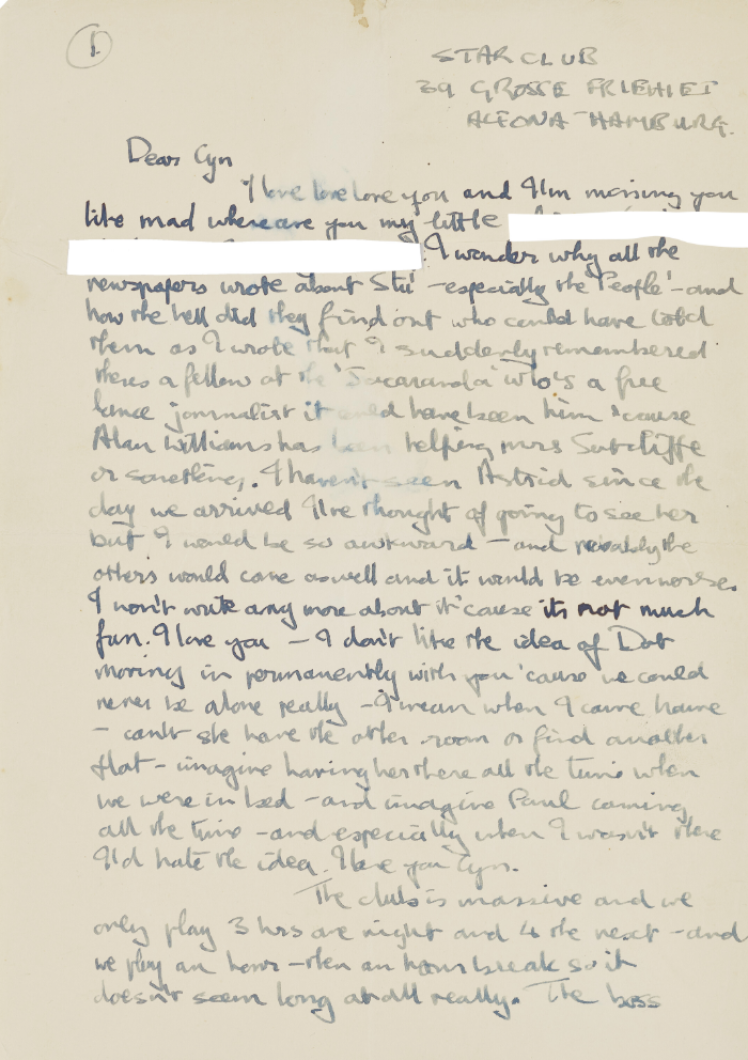 1
STAR CLUB
39 GROSSE FRIEHIEI
ALTONA-HAMBURG.
Dear Cyn
I love love love you and I'm missing you
like mad where are you my little
. I wonder why all the
newspapers wrote about Stu – especially the 'People' – and
how the hell did they find out who could have told
them as I wrote that I suddenly remembered
theres a fellow at the 'Jacaranda' who's a free
lance journalist it could have been him 'cause
Alan Williams has been helping mrs Sutcliffe
or something. I haven't seen Astrid since the
day we arrived I've thought of going to see her
but I would be so awkward – and probably the
others would come aswell and it would be even worse.
I won't write any more about it 'cause its not much
fun. I love you – I don't like the idea of Dot
moving in permanently with you 'cause we could
never be alone really – I mean when I come home
– can't she have the other room or find another
flat – imagine having her there all the time when
we were in bed – and imagine Paul coming
all the time – and especially when I wasn't there
I'd hate the idea. I love you Cyn.
The club is massive and we
only play 3 hrs one night and 4 the next – and
we play an hour – then an hour break so it
doesn't seem long at all really. The boss